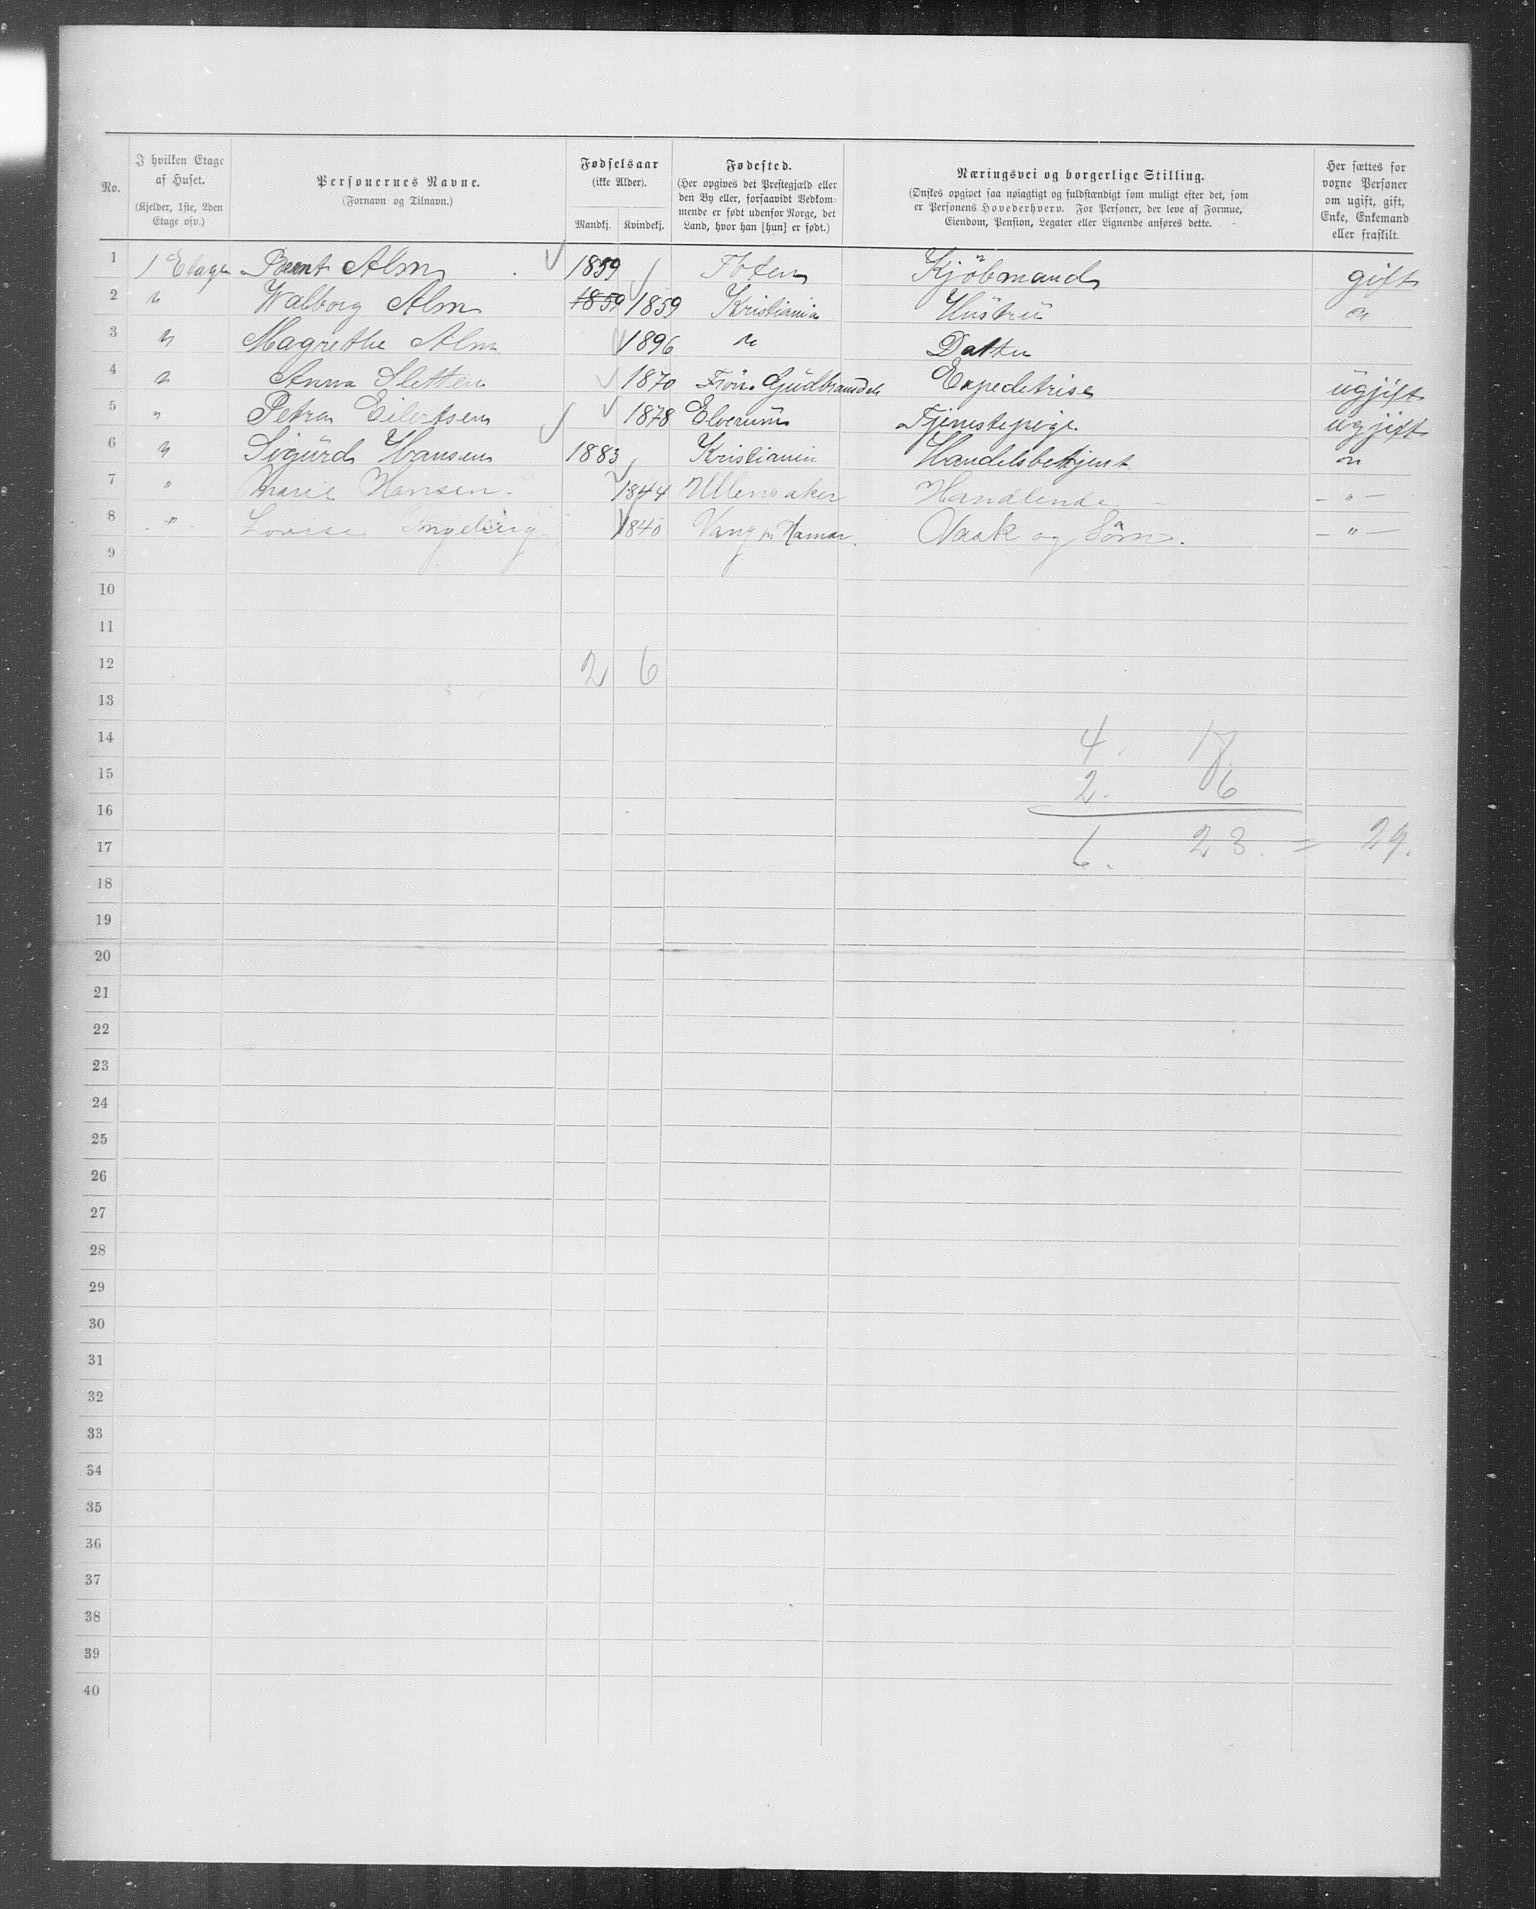 No.
I hvilken Etage af Huset. (Kjelder, 1ste, 2den Etage osv.)
Personernes Navne. (Fornavn og Tilnavn.)
Fødselsaar (ikke Alder). Mandkj. Kvindekj.
Fødested. (Her opgives det Prestegjæld eller den By eller, forsaavidt Vedkommende er født udenfor Norge, det Land, hvor han [hun] er født.)
Næringsvei og borgerlige Stilling. (Ønskes opgivet saa nøiagtigt og fuldstændigt som muligt efter det, som er Personens Hovederhverv. For Personer, der leve af Formue, Eiendom, Pension, Legater eller Lignende anføres dette.
Her sættes for voxne Personer om ugift, gift, Enke, Enkemand eller fraskilt.
1 1 Etage Bernt Alm 1859 Toten Kjöbmand gift
2 " Walborg Alm 1859 1859 Kristiania Hüstrü "
3 " Magrethe Alm 1896 " Datter
4 " Anna Sletten 1870 Fron Güdbransdal Expeditrise ügjift
5 " Petra Eilertsen 1878 Elverüm Tjenestepige ügjift
6 " Sigürd Hansen 1883 Kristiania Handelsbetjent "
7 " Marie Hansen. 1844 Ullensaker Handlende — " —
8 - " - Lovise Ingeberg 1840 Vang pr Hamar. Vask og Söm. — " —
9
10
11
12 2 6
13
14 4. 17.
15 2. 6
16
17 6. 23. = 29.
18
19
20
21
22
23
24
25
26
27
28
29
30
31
32
33
34
35
36
37
38
39
40